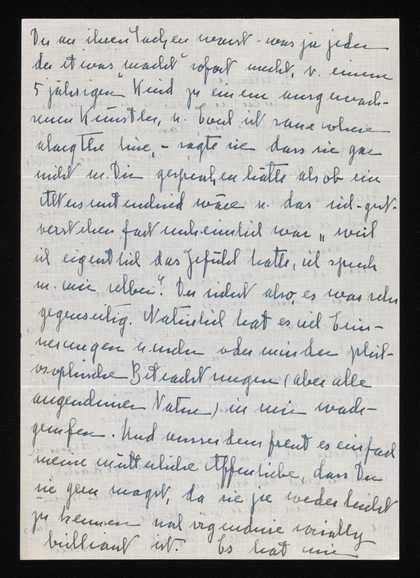 Du an ihren Sachen warst - was ja jeder
der etwas "macht" sofort merkt, v. einem
5 jährigen Kind zu einem ausgewach-
senen Künstler, u. Emil ist somewhere
along the line, - sagte sie dass sie gar
nicht m. Dir gesprochen hätte als ob ein
Altersunterschied wäre u. das sich-gut-
verstehen fast unheimlich war "weil
ich eigentlich das Gefühl hatte, ich sprech
m. mir selber". Du siehst also, es war sehr
gegenseitig. Natürlich hat es viel Erin-
nerungen u. mehr oder minder phil-
osophische Betrachtungen (aber alle
angenehmer Natur) in mir wach-
gerufen. Und ausserdem freut es einfach
meine mütterliche Affenliebe, dass Du
sie gern magst, da sie ja weder leicht
zu kennen noch irgendwie socially
brilliant ist. Es hat mir